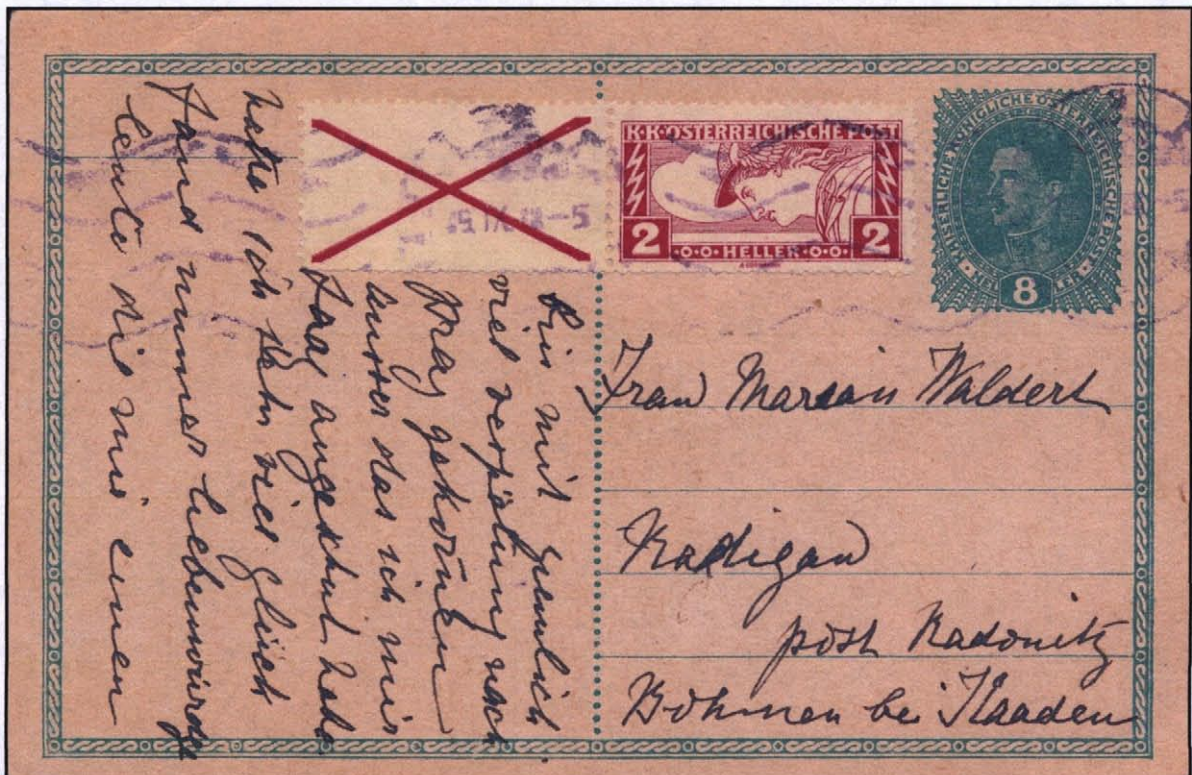 K.K. ÖSTERREICHISCHE POST
2 HELLER 2
KAISERLICHE KÖNIGLICHE ÖSTERREICHISCHE POST
8
IX 18-5
Frau Waldert
post Radonitz
Böhmen bei Kaaden
Bin mit
viel verspätung nach
prag gekommen
ausser das ich mir
habe
hatte ich sehr viel Glück
fand immer liebenswürdge
leute die mir einen